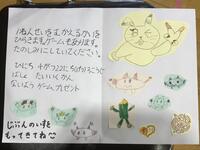 1ねんせいをむかえるかいを
ひらきます。ゲームもあります。
たのしみにしていてください。
ひにち 4がつ22にち
ばしょ たいいくかん
ないよう ゲーム、プレゼント
じぶんのいすを
もってきてね